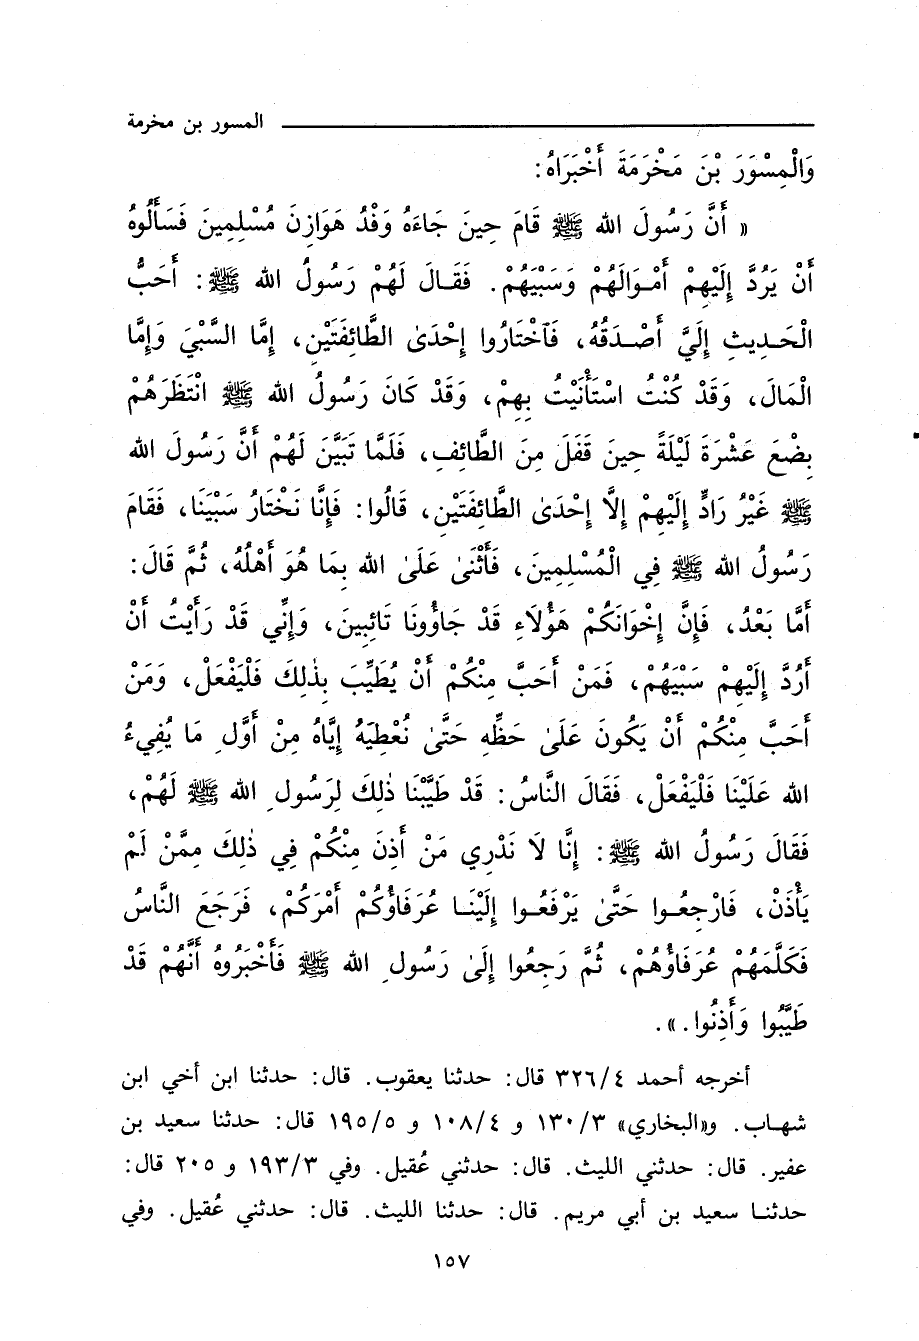 المسور بن مخرمة
وَالْمِسْوَرَ بْنَ مَخْرَمَةَ أَخْبَرَاهُ:
« أَنَّ رَسُولَ الله ﷺ قَامَ حِينَ جَاءَهُ وَفْدُ هَوَازِنَ مُسْلِمِينَ فَسَأَلُوهُ
أَنْ يَرُدَّ إِلَيْهِمْ أَمْوَالَهُمْ وَسَبْيَهُمْ. فَقَالَ لَهُمْ رَسُولُ الله ﷺ: أَحَبُّ
الْحَدِيثِ إِلَيَّ أَصْدَقُهُ، فَآخْتَارُوا إِحْدَىٰ الطَّائِفَتَيْنِ، إِمَّا السَّبْيَ وَإِمَّا
الْمَالَ، وَقَدْ كُنْتُ اسْتَأْنَيْتُ بِهِمْ، وَقَدْ كَانَ رَسُولُ الله ﷺ انْتَظَرَهُمْ
بِضْعَ عَشْرَةَ لَيْلَةً حِينَ قَفَلَ مِنَ الطَّائِفِ، فَلَمَّا تَبَيَّنَ لَهُمْ أَنَّ رَسُولَ الله
ﷺ غَيْرُ رَادٍّ إِلَيْهِمْ إِلَّا إِحْدَىٰ الطَّائِفَتَيْنِ، قَالُوا: فَإِنَّا نَخْتَارُ سَبْيَنَا، فَقَامَ
رَسُولُ الله ﷺ فِي الْمُسْلِمِينَ، فَأَثْنَىٰ عَلَىٰ الله بِمَا هُوَ أَهْلُهُ، ثُمَّ قَالَ:
أَمَّا بَعْدُ، فَإِنَّ إِخْوَانَكُمْ هَؤُلَاءِ قَدْ جَاؤُونَا تَائِبِينَ، وَإِنِّي قَدْ رَأَيْتُ أَنْ
أَرُدَّ إِلَيْهِمْ سَبْيَهُمْ، فَمَنْ أَحَبَّ مِنْكُمْ أَنْ يُطَيِّبَ بِذٰلِكَ فَلْيَفْعَلْ، وَمَنْ
أَحَبَّ مِنْكُمْ أَنْ يَكُونَ عَلَىٰ حَظِّهِ حَتَّىٰ نُعْطِيَهُ إِيَّاهُ مِنْ أَوَّلِ مَا يُفِيءُ
الله عَلَيْنَا فَلْيَفْعَلْ، فَقَالَ النَّاسُ: قَدْ طَيَّبْنَا ذٰلِكَ لِرَسُولِ الله ﷺ لَهُمْ،
فَقَالَ رَسُولُ الله ﷺ: إِنَّا لَا نَدْرِي مَنْ أَذِنَ مِنْكُمْ فِي ذٰلِكَ مِمَّنْ لَمْ
يَأْذَنْ، فَارْجِعُوا حَتَّىٰ يَرْفَعُوا إِلَيْنَا عُرَفَاؤُكُمْ أَمْرَكُمْ، فَرَجَعَ النَّاسُ
فَكَلَّمَهُمْ عُرَفَاؤُهُمْ، ثُمَّ رَجِعُوا إِلَىٰ رَسُولِ الله ﷺ فَأَخْبَرُوهُ أَنَّهُمْ قَدْ
طَيَّبُوا وَأَذِنُوا.».
أخرجه أحمد ٣٢٦/٤ قال: حدثنا يعقوب. قال: حدثنا ابن أخي ابن
شهاب. و«البخاري» ١٣٠/٣ و ١٠٨/٤ و ١٩٥/٥ قال: حدثنا سعيد بن
عفير. قال: حدثني الليث. قال: حدثني عُقيل. وفي ١٩٣/٣ و ٢٠٥ قال:
حدثنا سعيد بن أبي مريم. قال: حدثنا الليث. قال: حدثني عُقيل. وفي
١٥٧